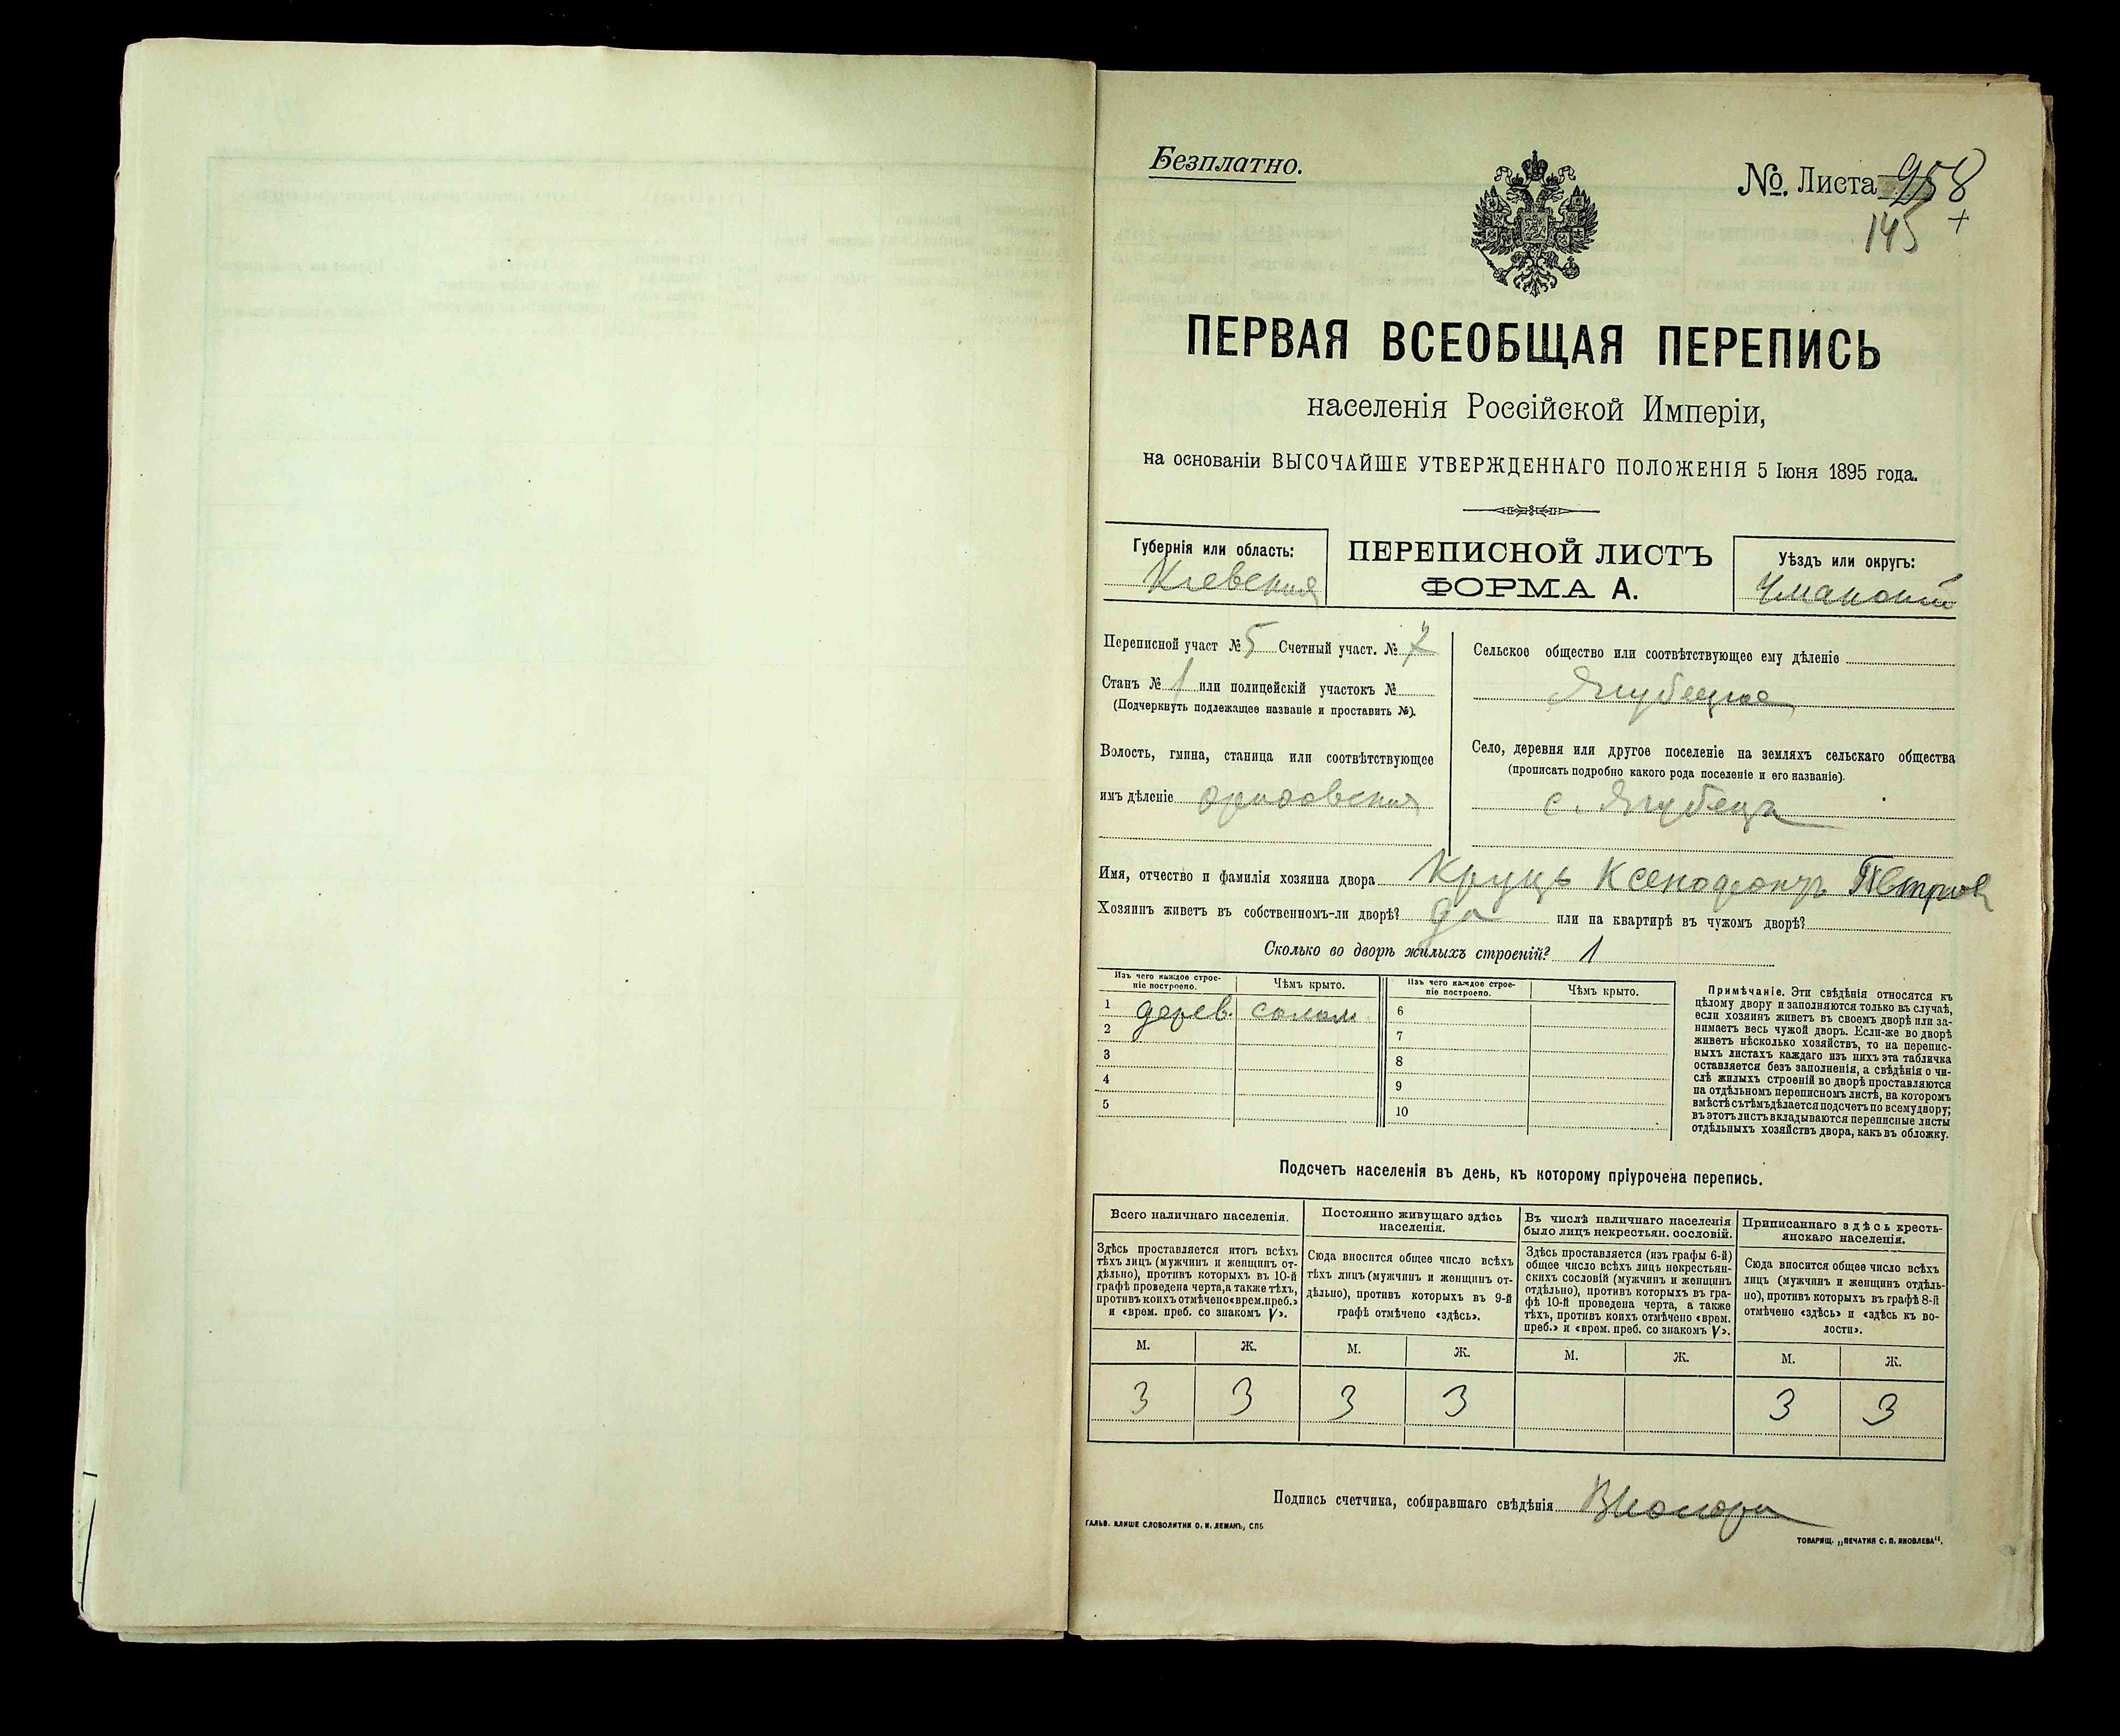 Безплатно.
№. Листа 958
145
+
ПЕРВАЯ ВСЕОБЩАЯ ПЕРЕПИСЬ
населенія Россійской Имперіи,
на основаніи ВЫСОЧАЙШЕ УТВЕРЖДЕННАГО ПОЛОЖЕНІЯ 5 Іюня 1895 года.
Губернія или область:
Кіевская
ПЕРЕПИСНОЙ ЛИСТЪ
ФОРМА А.
Уѣздъ или округъ:
Уманскій
Переписной участ № 5 Счетный участ. № 7
Станъ № 1 или полицейскій участокъ №
(Подчеркнуть подлежащее названіе и проставить №).
Волость, гмина, станица или соотвѣтствующее
имъ дѣленіе
Сельское общество или соотвѣтствующее ему дѣленіе
Ягубецкое
Село, деревня или другое поселеніе на земляхъ сельскаго общества
(прописать подробно какого рода поселеніе и его названіе).
с. Ягубеца
Имя, отчество и фамилія хозяина двора Круць Ксенофонтъ Петровъ
Хозяинъ живетъ въ собственномъ-ли дворѣ? да или на квартирѣ въ чужомъ дворѣ?
Сколько во дворѣ жилыхъ строеній? 1
Изъ чего каждое строе-
ніе построено.
Чѣмъ крыто.
Изъ чего каждое строе-
ніе построено.
Чѣмъ крыто.
1 дерев. солом
2
3
4
5
6
7
8
9
10
Примѣчаніе. Эти свѣдѣнія относятся къ
цѣлому двору и заполняются только въ случаѣ,
если хозяинъ живетъ въ своемъ дворѣ или за-
нимаетъ весь чужой дворъ. Если-же во дворѣ
живетъ нѣсколько хозяйствъ, то на перепис-
ныхъ листахъ каждаго изъ нихъ эта табличка
оставляется безъ заполненія, а свѣдѣнія о чи-
слѣ жилыхъ строеній во дворѣ проставляются
на отдѣльномъ переписномъ листѣ, на которомъ
вмѣстѣ съ тѣмъ дѣлается подсчетъ по всему двору;
въ этотъ листъ вкладываются переписные листы
отдѣльныхъ хозяйствъ двора, какъ въ обложку.
Подсчетъ населенія въ день, къ которому пріурочена перепись.
Всего наличнаго населенія.
Здѣсь проставляется итогъ всѣхъ
тѣхъ лицъ (мужчинъ и женщинъ от-
дѣльно), противъ которыхъ въ 10-й
графѣ проведена черта, а также тѣхъ,
противъ коихъ отмѣчено «врем. преб.»
и «врем. преб. со знакомъ V».
Постоянно живущаго здѣсь
населенія.
Сюда вносится общее число всѣхъ
тѣхъ лицъ (мужчинъ и женщинъ от-
дѣльно), противъ которыхъ въ 9-й
графѣ отмѣчено «здѣсь».
Въ числѣ наличнаго населенія
было лицъ некрестьян. сословій.
Здѣсь проставляется (изъ графы 6-й)
общее число всѣхъ лицъ некрестьян-
скихъ сословій (мужчинъ и женщинъ
отдѣльно), противъ которыхъ въ гра-
фѣ 10-й проведена черта, а также
тѣхъ, противъ коихъ отмѣчено «врем.
преб.» и «врем. преб. со знакомъ V».
Приписаннаго здѣсь кресть-
янскаго населенія.
Сюда вносится общее число всѣхъ
лицъ (мужчинъ и женщинъ отдѣль-
но), противъ которыхъ въ графѣ 8-й
отмѣчено «здѣсь» и «здѣсь къ во-
лости».
М. Ж. М. Ж. М. Ж. М. Ж.
3 3 3 3 3 3
Подпись счетчика, собиравшаго свѣдѣнія
ГАЛЬВ. КЛИШЕ СЛОВОЛИТНИ О. И. ЛЕМАНЪ, СПБ
ТОВАРИЩ. „ПЕЧАТНЯ С. П. ЯКОВЛЕВА".